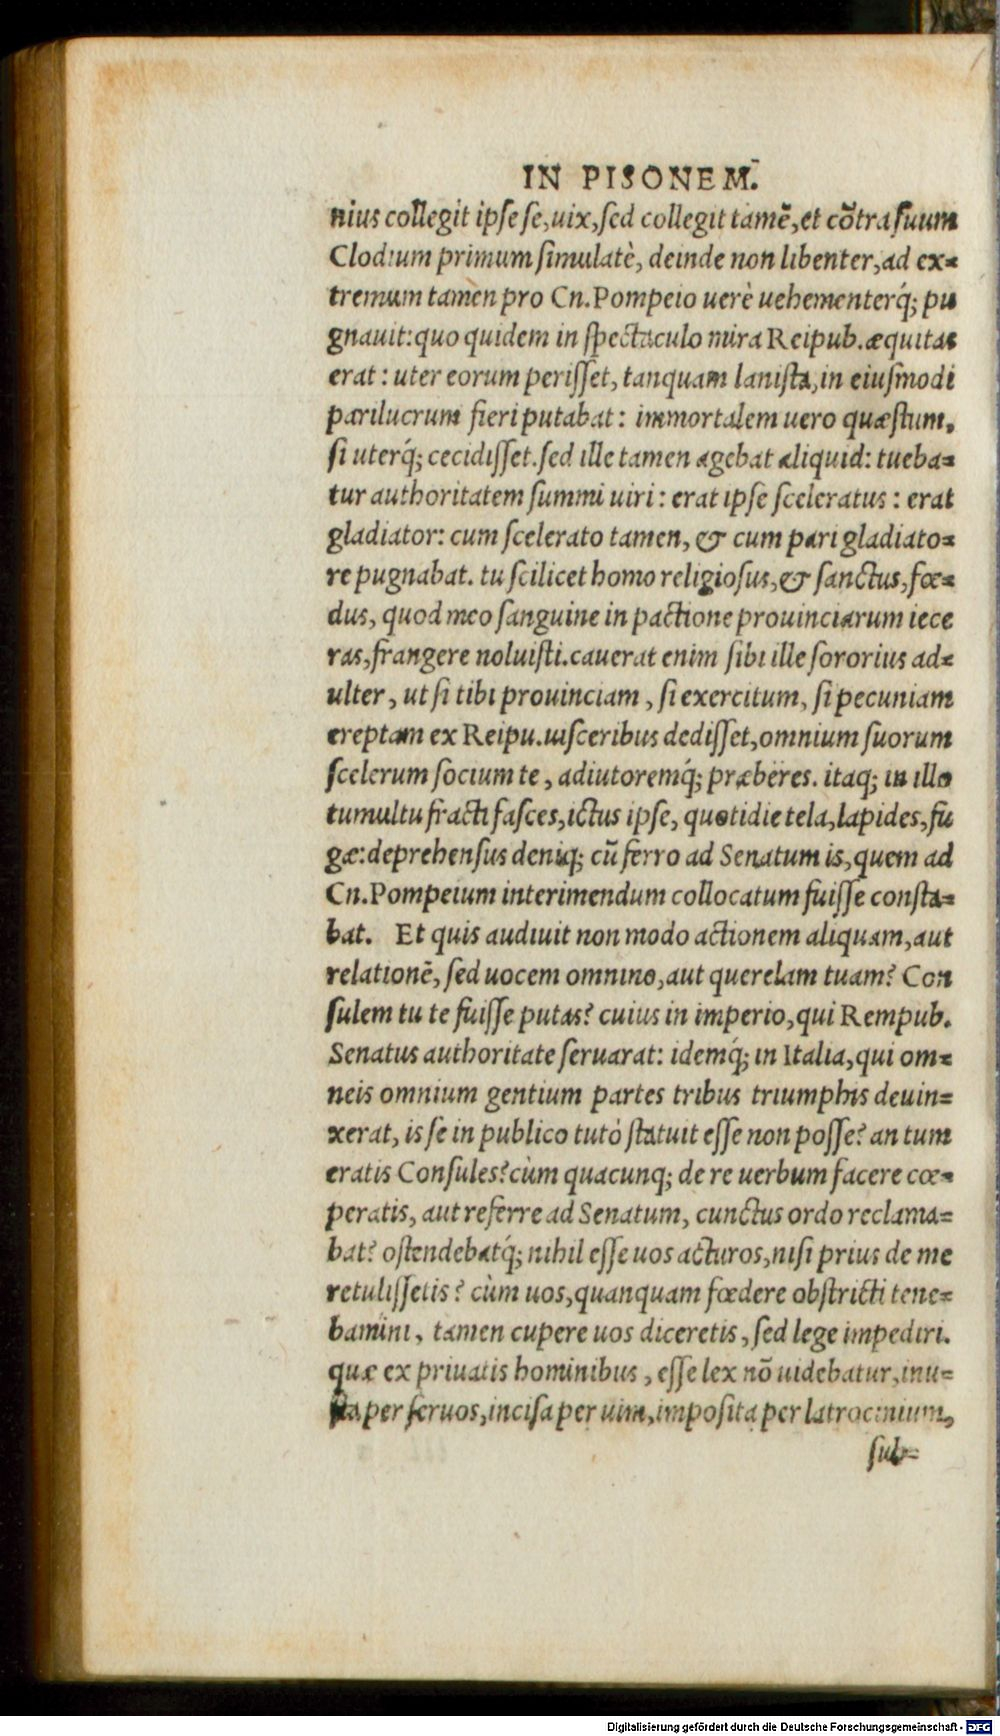 IN PISONEM.
nius collegit ipse se, uix, sed collegit tamē, et cōtra suum
Clodium primum simulatè, deinde non libenter, ad ex=
tremum tamen pro Cn. Pompeio uerè uehementerq́; pu
gnauit: quo quidem in spectaculo mira Reipub. æquitas
erat: uter eorum perisset, tanquam lanista, in eiusmodi
pari lucrum fieri putabat: immortalem uero quæstum,
si uterq́; cecidisset. sed ille tamen agebat aliquid: tueba=
tur authoritatem summi uiri: erat ipse sceleratus: erat
gladiator: cum scelerato tamen, & cum pari gladiato=
re pugnabat. tu scilicet homo religiosus, & sanctus, fœ=
dus, quod meo sanguine in pactione prouinciarum iece
ras, frangere noluisti. cauerat enim sibi ille sororius ad=
ulter, ut si tibi prouinciam, si exercitum, si pecuniam
ereptam ex Reipu. uisceribus dedisset, omnium suorum
scelerum socium te, adiutoremq́; præberes. itaq; in illo
tumultu fracti fasces, ictus ipse, quotidie tela, lapides, fu
gæ: deprehensus deniq; cū ferro ad Senatum is, quem ad
Cn. Pompeium interimendum collocatum fuisse consta=
bat. Et quis audiuit non modo actionem aliquam, aut
relationē, sed uocem omnino, aut querelam tuam? Con
sulem tu te fuisse putas? cuius in imperio, qui Rempub.
Senatus authoritate seruarat: idemq́; in Italia, qui om=
neis omnium gentium partes tribus triumphis deuin=
xerat, is se in publico tutò statuit esse non posse? an tum
eratis Consules? cùm quacunq; de re uerbum facere cœ=
peratis, aut referre ad Senatum, cunctus ordo reclama=
bat? ostendebatq́; nihil esse uos acturos, nisi prius de me
retulissetis? cùm uos, quanquam fœdere obstricti tene=
bamini, tamen cupere uos diceretis, sed lege impediri.
quæ ex priuatis hominibus, esse lex nō uidebatur, inu=
sta per seruos, incisa per uim, imposita per latrocinium,
sub=
Digitalisierung gefördert durch die Deutsche Forschungsgemeinschaft - DFG